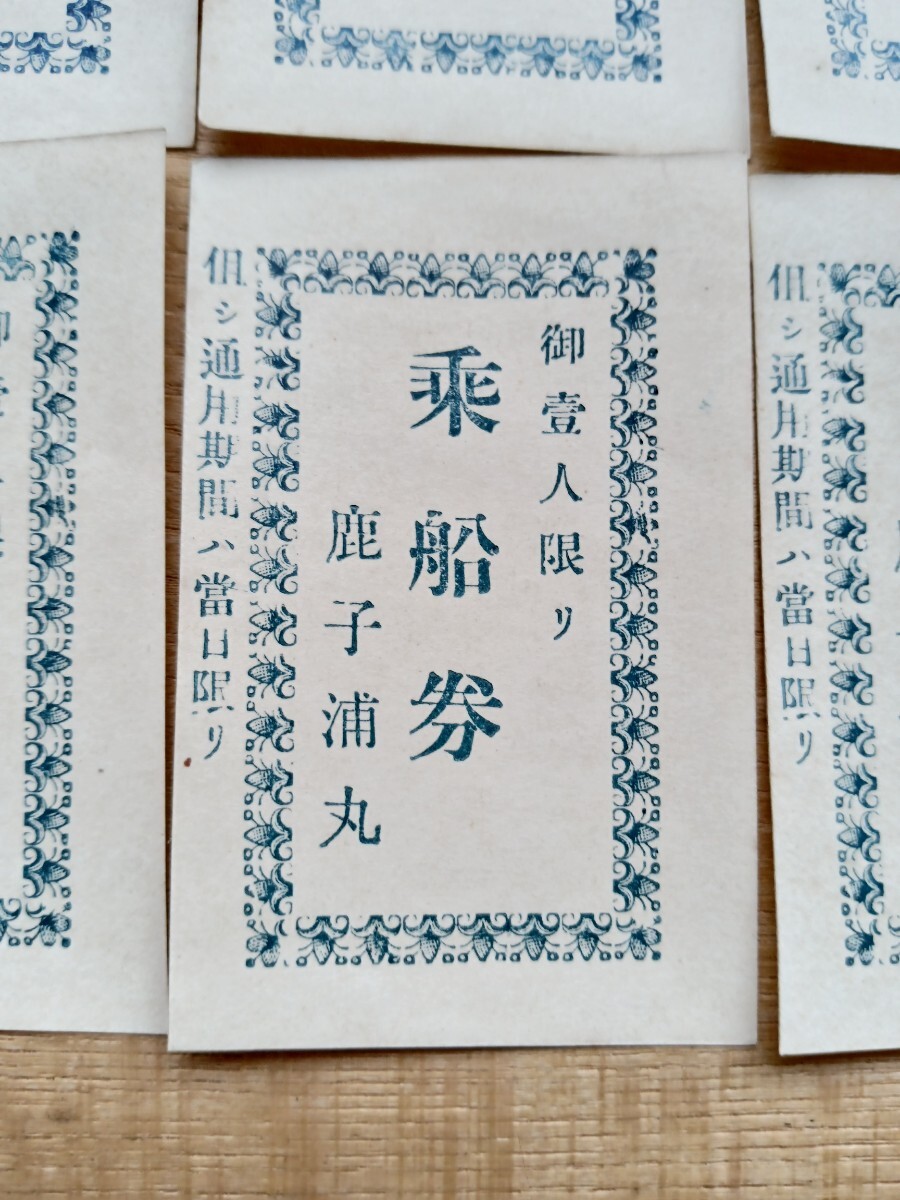 御壹人限リ
乘船券
鹿子浦丸
但シ通用期間ハ當日限リ
但シ通用期間ハ當日限リ